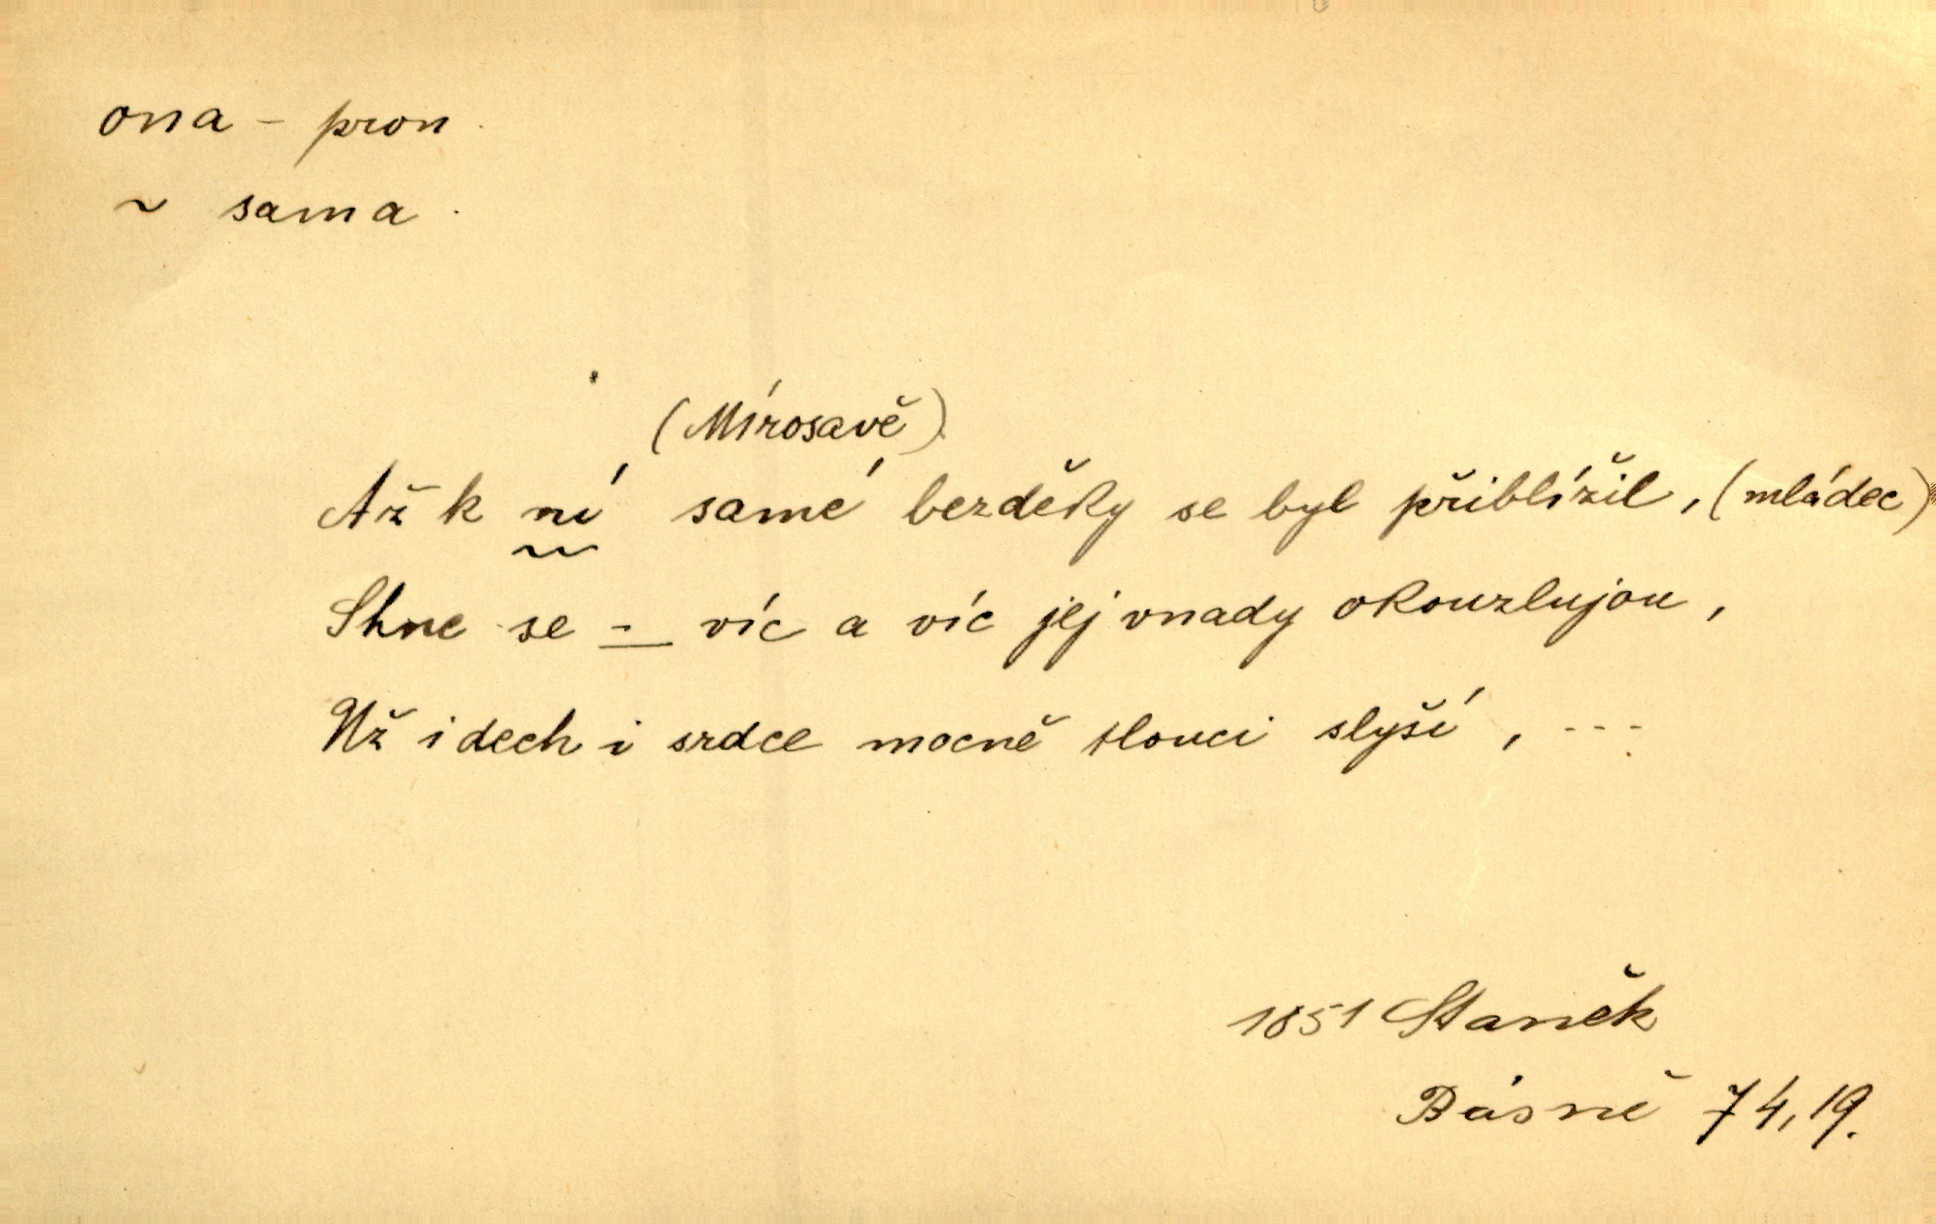 ona – pron.
~ sama.
(Mírosavě)
Až k ní samé bezděky se byl přiblížil, (mládec)
Shne se – víc a víc jej vnady okouzlujou,
Už i dech i srdce mocně tlouci slyší, ...
1851 Staněk
Básně 74, 19.